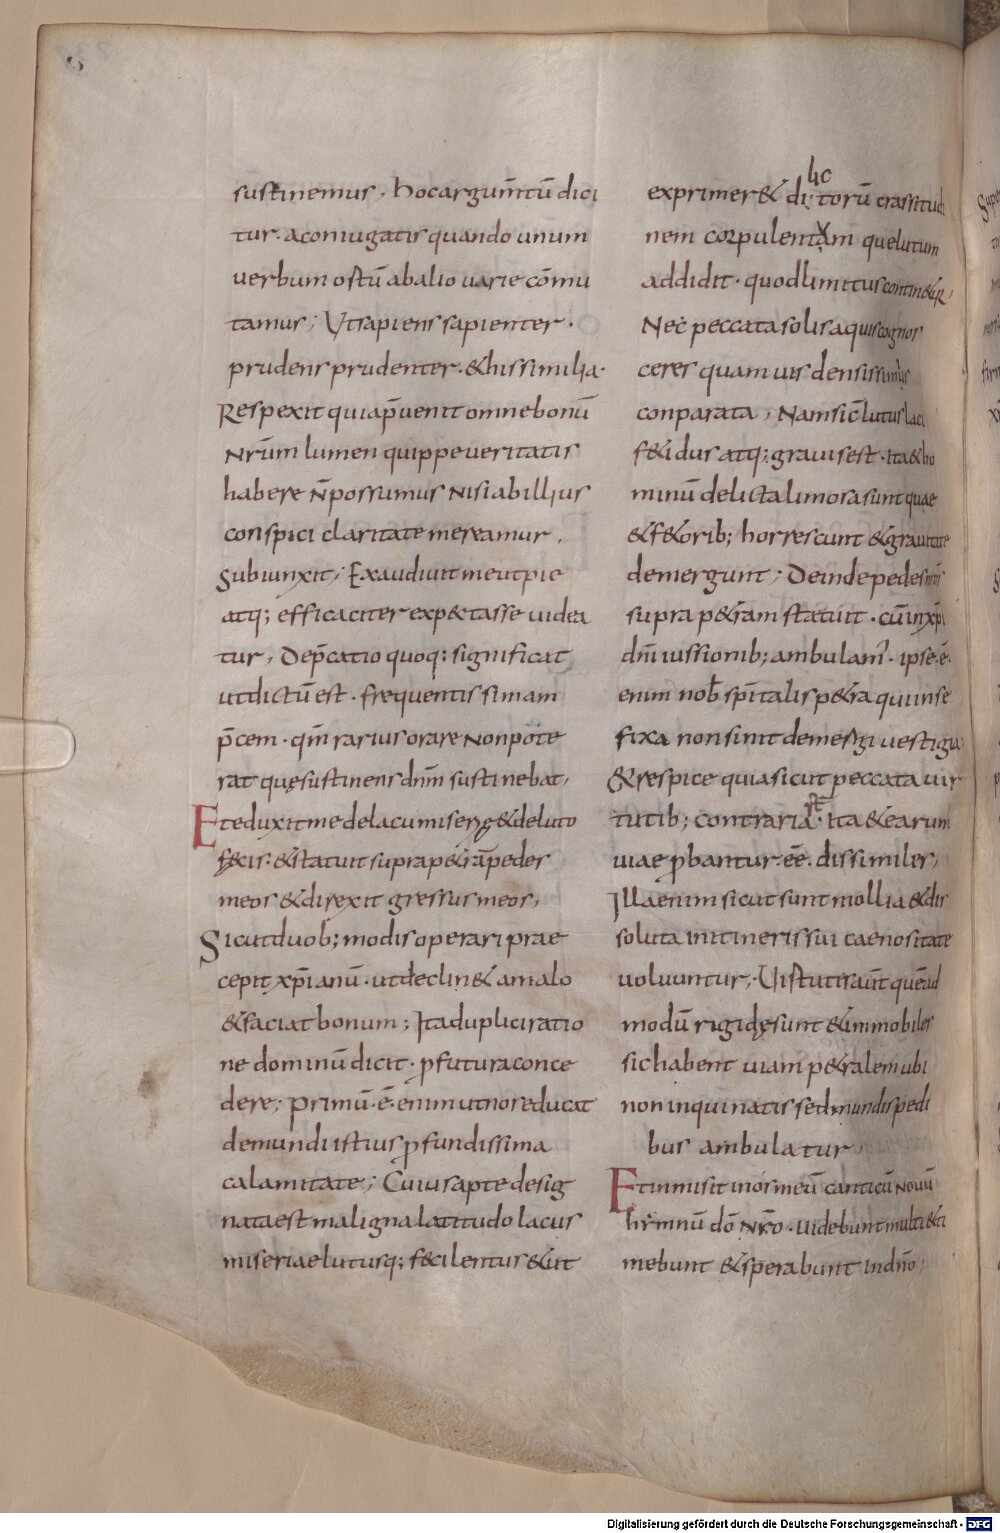 sustinemus, hoc argum̄tū dici
tur. a coniugatis quando unum
uerbum ostū ab alio uarie cōmu
tamus; Ut sapiens sapienter.
prudens prudenter. & his similia.
Respexit quia p̄uenit omne bonū
Nr̄um lumen quippe ueritatis
habere n̄ possumus nisi ab illius
conspici claritate mereamur,
Subiunxit; Exaudiuit me ut pie
atq; efficaciter exp&tasse uidea
tur, Dep̄catio quoq; significat
ut dictū est. frequentissimam
p̄cem. qm̄ rarius orare non pote
rat quę sustinens dnm̄ sustinebat,
Et eduxit me de lacu miserię & de luto
fęcis. & statuit supra p&rā pedes
meos & direxit gressus meos,
Sicut duob; modis operari prae
cepit xp̄ianū. ut declin& a malo
& faciat bonum; Ita duplici ratio
ne dominū dicit. ꝓfutura conce
dere; Primū. ē. enim ut nos educat
de mundi istius ꝓfundissima
calamitate; Cuius apte desig
nata est maligna latitudo lacus
miseriae lutusq; fęcilentus & ut
exprimer& di: hic torū crassitud
nem corpulentam que lutum
addidit. quod limitus contin&ur
Nec peccata solis aquis cognos
ceres quam uis densissimus
conparata, Nam sic̄ lutus laci
f&idus atq; grauis est. ita & ho
minū delicta limosa sunt quae
& f&orib; horrescunt & grauitate
demergunt; Deinde pedes meos
supra p&ram statuit. cū in xp̄i
dn̄i iussionib; ambulam̄. ipse. ē.
enim nob̄ sp̄italis p&ra qui in se
fixa non sinit demergi uestigia
& respice quia sicut peccata uir
tutib; contraria st̄. ita & earum
uiae ꝓbantur. eē. dissimiles,
Illa enim sicut sunt mollia & dis
soluta in itineris sui caenositate
uoluuntur; Uirtutis aūt quēad
modū rigidę sunt & immobiles
sic habent uiam p&ralem ubi
non inquinatis sed mundis pedi
bus ambulatur
Et inmisit in os meū canticū nouū
hymnū dō nr̄o. uidebunt multi & ti
mebunt & sperabunt in dnō;